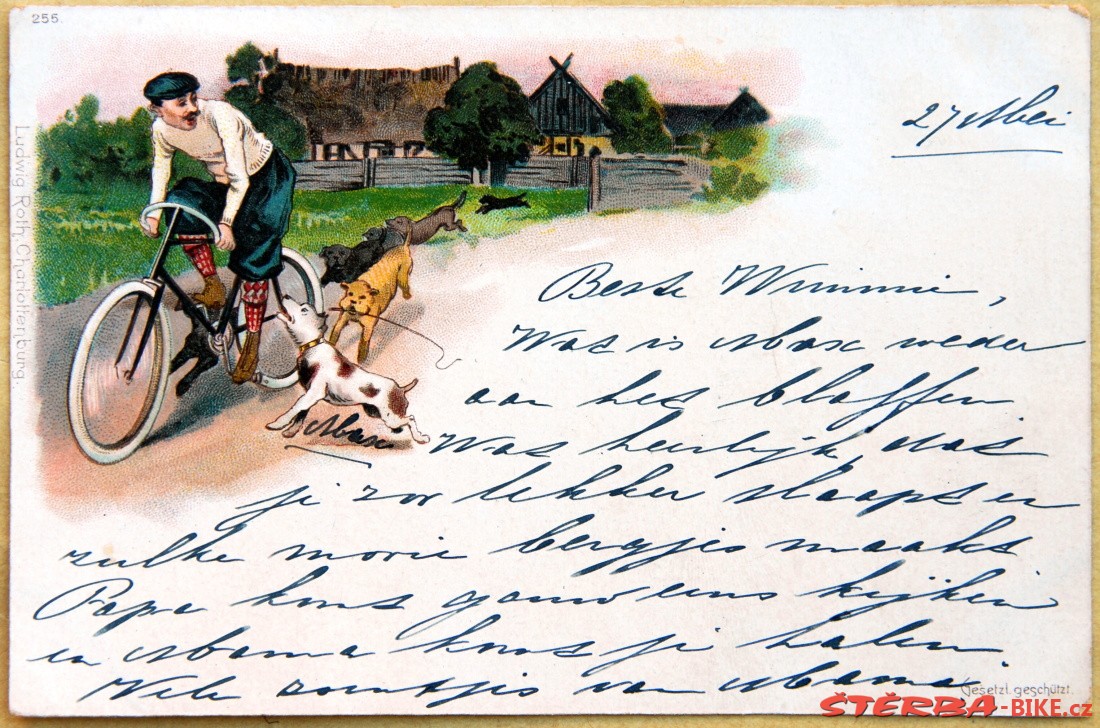 255.
Ludwig Roth, Charlottenburg.
27 Mei
Beste Wimmie,
Wat is Max weder
aan het blaffen
Max
Wat heerlijk, dat
je zoo lekker slaapt en
zulke mooie bergjes maakt
Papa komt gauw eens kijken
en Mama komt je halen
Vele zoentjes van Mama
Gesetzl. geschützt.
ŠTĚRBA-BIKE.cz